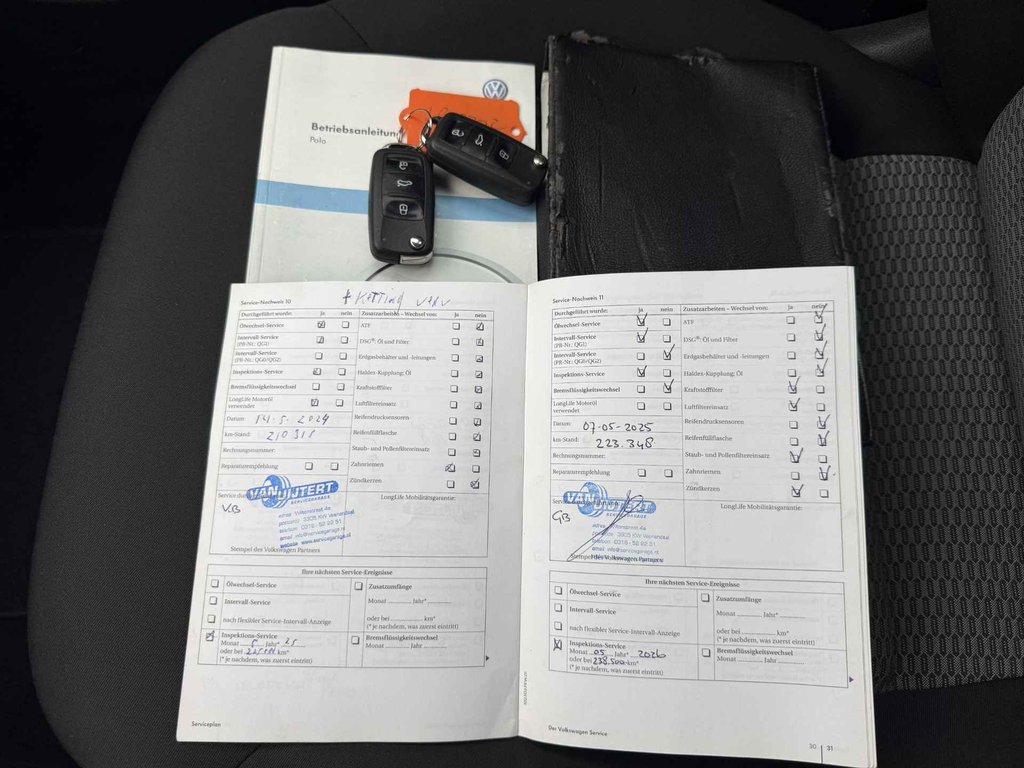 Betriebsanleitung
Polo
Service-Nachweis 10
+ KETTING
Durchgeführt wurde: ja nein
Zusatzarbeiten – Wechsel von: ja nein
Ölwechsel-Service
ATF
Intervall-Service
(PR-Nr.: QG1)
DSG®: Öl und Filter
Intervall-Service
(PR-Nr.: QG0/QG2)
Erdgasbehälter und -leitungen
Inspektions-Service
Haldex-Kupplung: Öl
Bremsflüssigkeitswechsel
Kraftstofffilter
LongLife Motoröl
verwendet
Luftfiltereinsatz
Datum: 14-5-2024
Reifendrucksensoren
km-Stand:
Reifenfüllflasche
Rechnungsnummer:
Staub- und Pollenfiltereinsatz
Reparaturempfehlung
Zahnriemen
Zündkerzen
VAN UITERT
SERVICEGARAGE
V.B
LongLife Mobilitätsgarantie:
telefoon 0318 - 52 22 51
email info@servicegarage.nl
website www.servicegarage.nl
Stempel des Volkswagen Partners
Ihre nächsten Service-Ereignisse
Ölwechsel-Service
Zusatzumfänge
Intervall-Service
Monat Jahr*
nach flexibler Service-Intervall-Anzeige
oder bei km*
(* je nachdem, was zuerst eintritt)
Inspektions-Service
Monat 5 Jahr* 25
oder bei km*
(* je nachdem, was zuerst eintritt)
Bremsflüssigkeitswechsel
Serviceplan
Service-Nachweis 11
Durchgeführt wurde: ja nein
Zusatzarbeiten – Wechsel von: Ja nein
Ölwechsel-Service
ATF
Intervall-Service
(PR-Nr.: QG1)
DSG®: Öl und Filter
Intervall-Service
(PR-Nr.: QG0/QG2)
Erdgasbehälter und -leitungen
Inspektions-Service
Haldex-Kupplung: Öl
Bremsflüssigkeitswechsel
Kraftstofffilter
LongLife Motoröl
verwendet
Luftfiltereinsatz
Datum: 07-05-2025
Reifendrucksensoren
km-Stand: 223.348
Reifenfüllflasche
Rechnungsnummer:
Staub- und Pollenfiltereinsatz
Reparaturempfehlung
Zahnriemen
Zündkerzen
GB
LongLife Mobilitätsgarantie:
telefoon 0318 - 52 22 51
email info@servicegarage.nl
Stempel des Volkswagen Partners
Ihre nächsten Service-Ereignisse
Ölwechsel-Service
Zusatzumfänge
Intervall-Service
Monat Jahr*
nach flexibler Service-Intervall-Anzeige
oder bei km*
(* je nachdem, was zuerst eintritt)
Inspektions-Service
Monat 05 Jahr* 2026
oder bei 238.500 km*
(* je nachdem, was zuerst eintritt)
Bremsflüssigkeitswechsel
Der Volkswagen Service
30 | 31